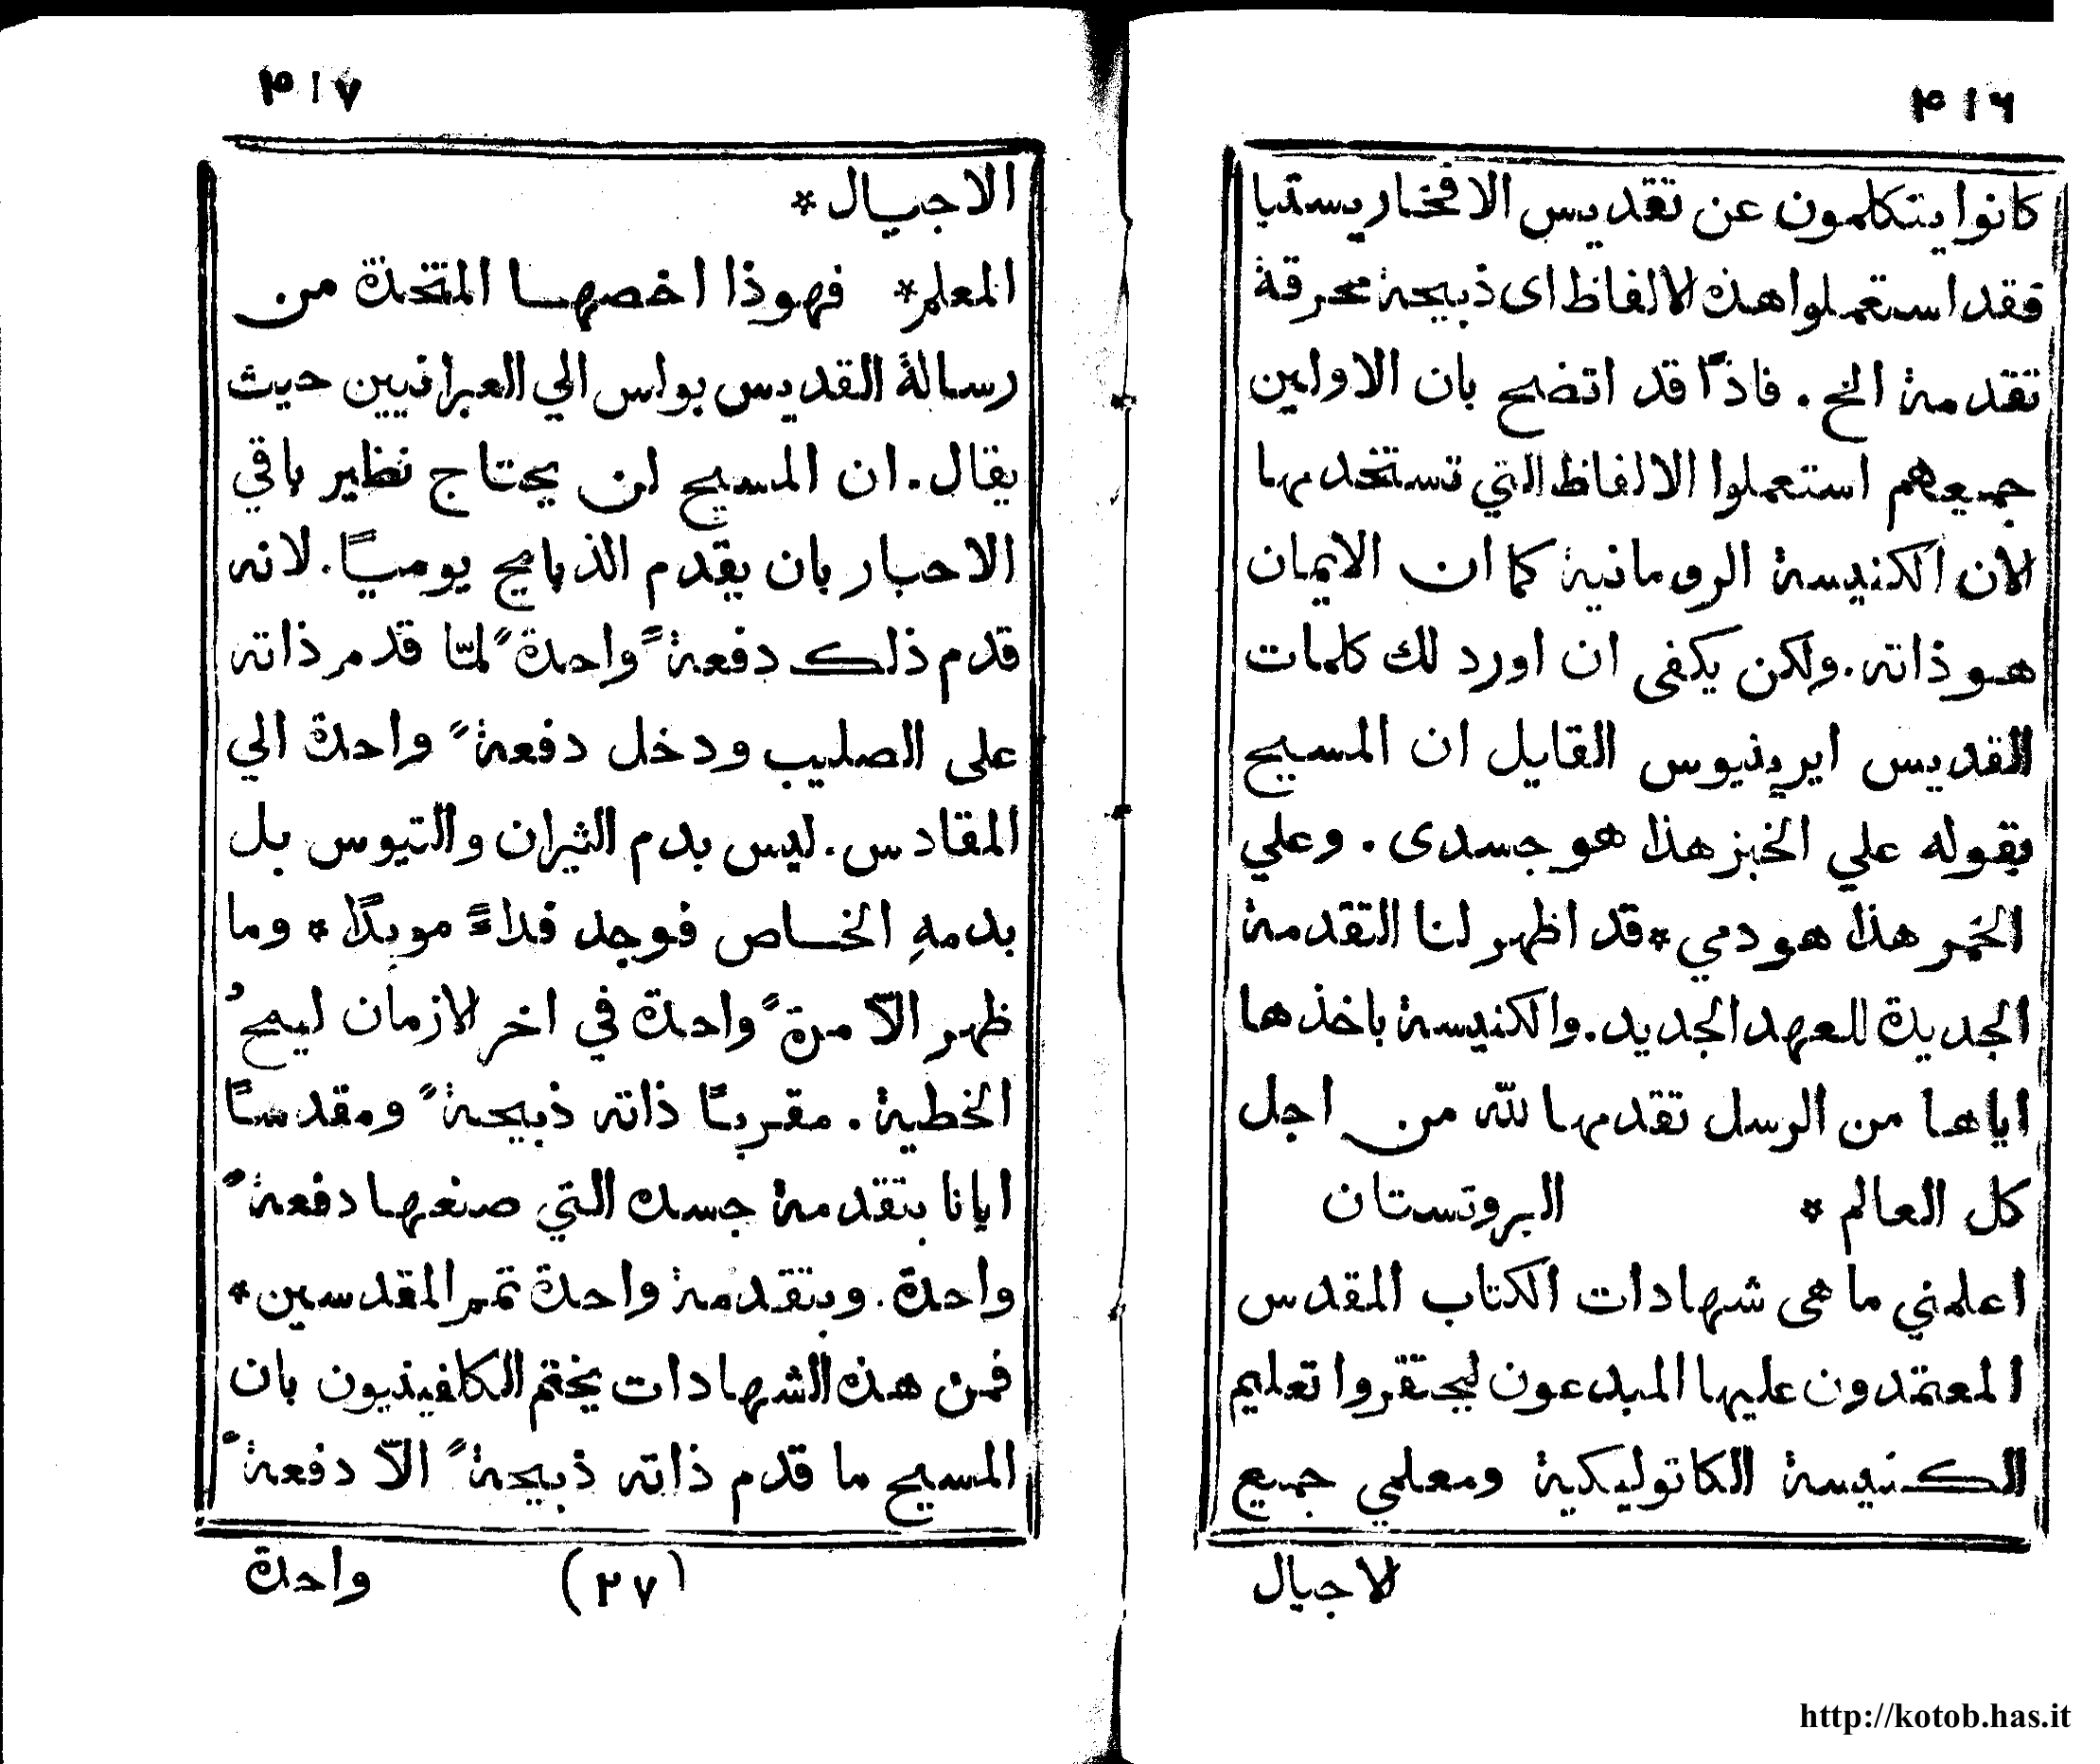 ٤١٦
كانوا يتكلمون عن تقديس الافخاريستيا
فقد استعملوا هذه الالفاظ اى ذبيحة محرقة
تقدمة الخ . فاذًا قد اتضح بان الاولين
جميعهم استعملوا الالفاظ التي تستخدمها
الان الكنيسة الرومانية كما ان الايمان
هو ذاته . ولكن يكفى ان اورد لك كلمات
القديس ايرينيوس القايل ان المسيح
بقوله علي الخبز هذا هو جسدى . وعلي
الخمر هذا هو دمي * قد اظهر لنا التقدمة
الجديدة للعهد الجديد . والكنيسة باخذها
اياها من الرسل تقدمها لله من اجل
كل العالم * البروتستان
اعلمني ما هى شهادات الكتاب المقدس
المعتمدون عليها المبدعون ليحتقروا تعليم
الكنيسة الكاتوليكية ومعلمي جميع
الاجيال
٤١٧
الاجيال *
المعلم * فهوذا اخصها المتخذة من
رسالة القديس بولس الي العبرانيين حيث
يقال . ان المسيح لن يحتاج نظير باقي
الاحبار بان يقدم الذبايح يوميًا . لانه
قدم ذلك دفعةً واحدةً لمّا قدم ذاته
على الصليب ودخل دفعةً واحدة الي
المقادس . ليس بدم الثيران والتيوس بل
بدمهِ الخاص فوجد فداءً موبدًا * وما
ظهر الّا مرةً واحدة في اخر الازمان ليمحُ
الخطية . مقربًا ذاته ذبيحةً ومقدسًا
ايانا بتقدمة جسده التي صنعها دفعةً
واحدة . وبتقدمة واحدة تمم المقدسين *
فمن هذه الشهادات يختم الكلفينيون بان
المسيح ما قدم ذاته ذبيحةً الّا دفعةً
(٢٧) واحدة
http://kotob.has.it